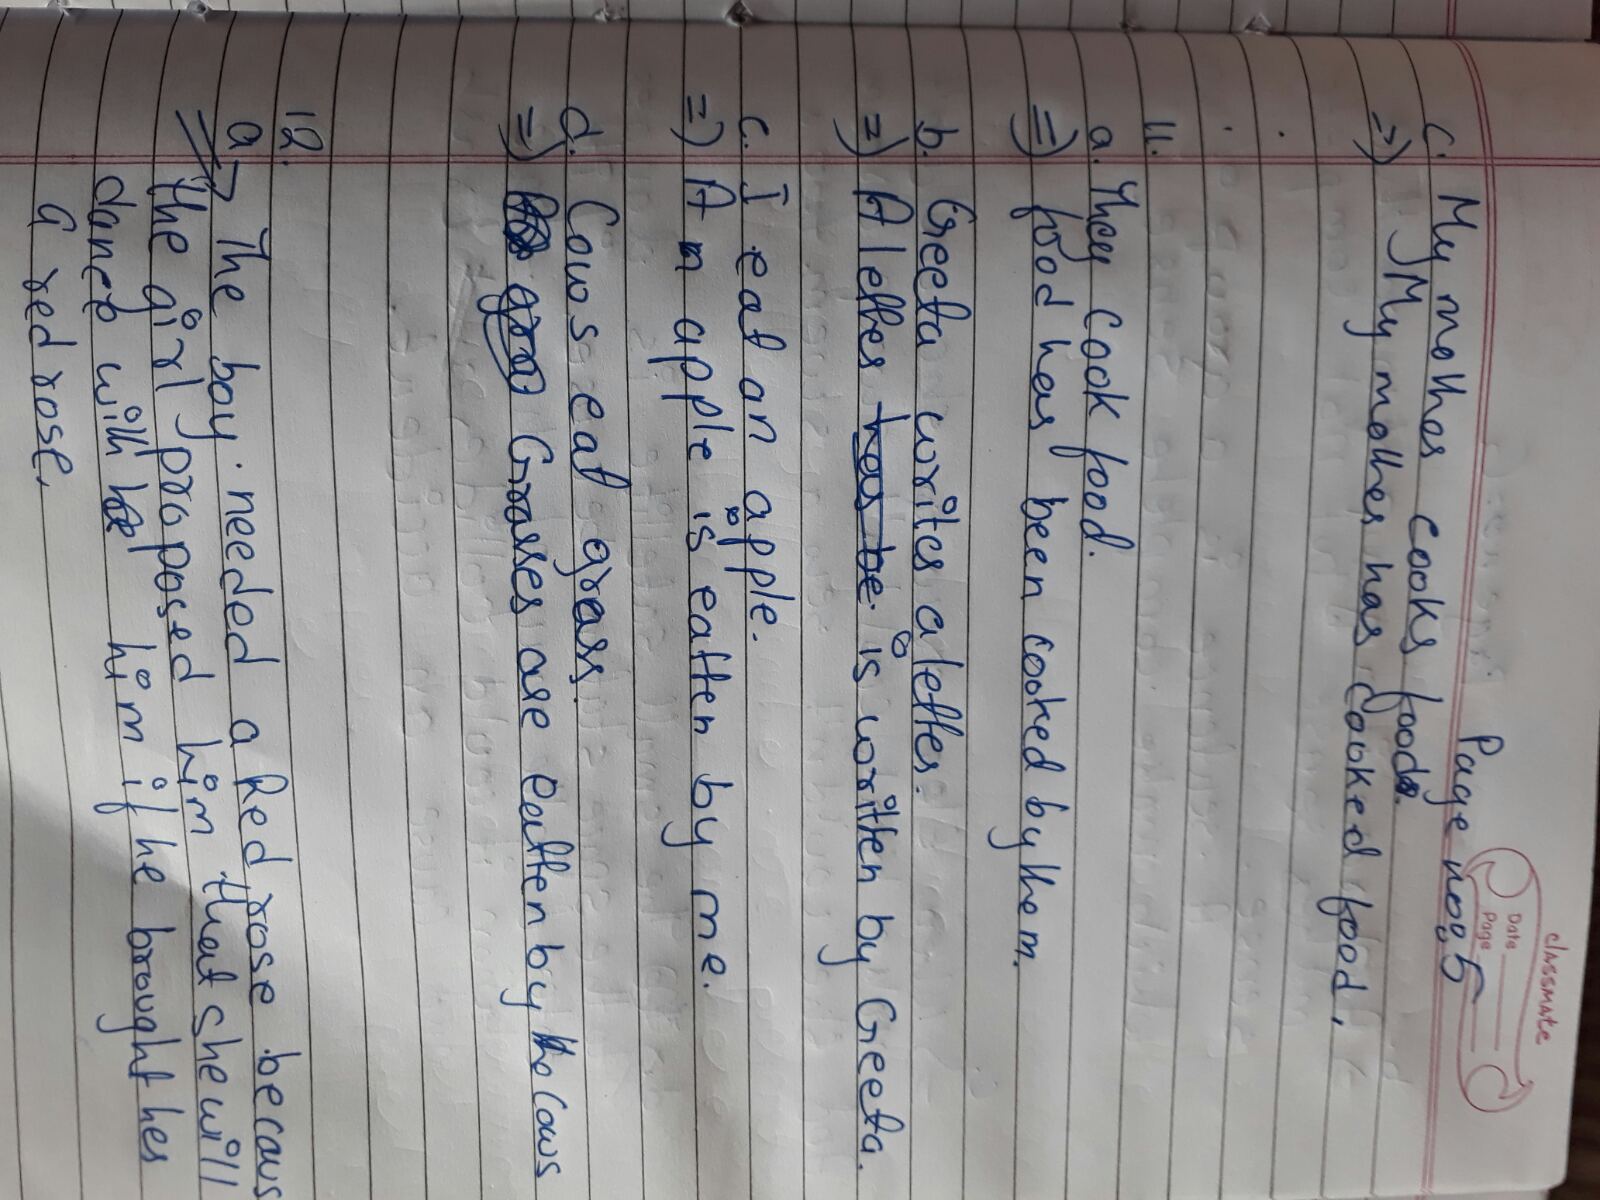 classmate
Date
Page
Page no: 5
c. My mother cooks food.
=> My mother has cooked food.
11.
a. They cook food.
=> food has been cooked by them.
b. Geeta writes a letter.
=> A letter has be is written by Geeta.
c. I eat an apple.
=> An apple is eatten by me.
d. Cows eat grass.
=> Grasses are eatten by the cows
12.
a. The boy needed a Red rose becaus
=> the girl proposed him that she will
dance with him if he brought her
a red rose.